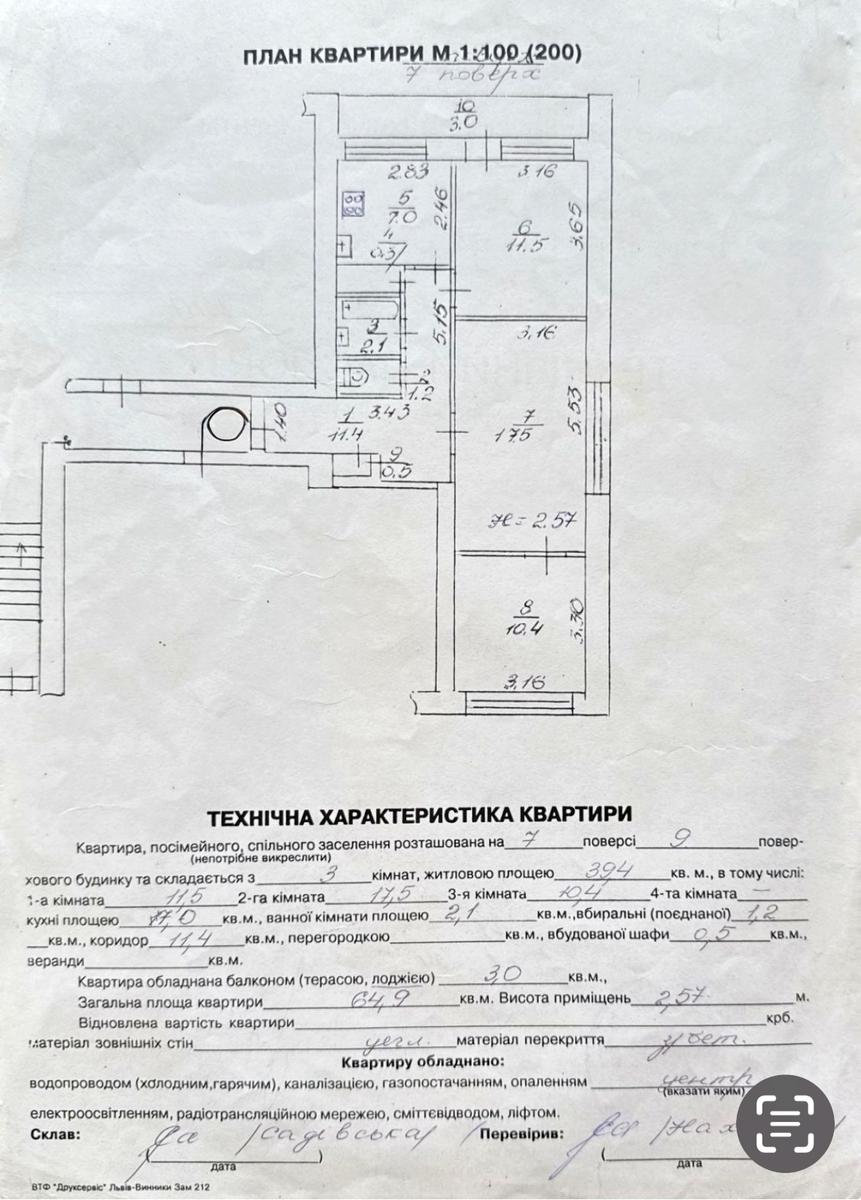 ПЛАН КВАРТИРИ М 1:100 (200)
7 поверх
10
3.0
2.83
3.16
5
7.0
2.46
6
11.5
3.65
4
0.3
5.15
3.16
3
2.1
1.2
1.40
1
11.4
3.43
7
17.5
5.53
9
0.5
H = 2.57
8
10.4
3.30
3.16
ТЕХНІЧНА ХАРАКТЕРИСТИКА КВАРТИРИ
Квартира, посімейного, спільного заселення розташована на 7 поверсі 9 повер-
(непотрібне викреслити)
хового будинку та складається з 3 кімнат, житловою площею 39.4 кв. м., в тому числі:
1-а кімната 11,5 2-га кімната 17,5 3-я кімната 10,4 4-та кімната —
кухні площею 7,0 кв.м., ванної кімнати площею 2,1 кв.м.,вбиральні (поєднаної) 1,2
кв.м., коридор 11,4 кв.м., перегородкою кв.м., вбудованої шафи 0,5 кв.м.,
веранди кв.м.
Квартира обладнана балконом (терасою, лоджією) 3,0 кв.м.,
Загальна площа квартири 64,9 кв.м. Висота приміщень 2,57 м.
Відновлена вартість квартири крб.
матеріал зовнішніх стін цегл. матеріал перекриття з/бет.
Квартиру обладнано:
водопроводом (холодним,гарячим), каналізацією, газопостачанням, опаленням центр
(вказати яким)
електроосвітленням, радіотрансляційною мережею, сміттєвідводом, ліфтом.
Склав: /Садівська/ Перевірив:
дата дата
ВТФ "Друксервіс" Львів-Винники Зам 212